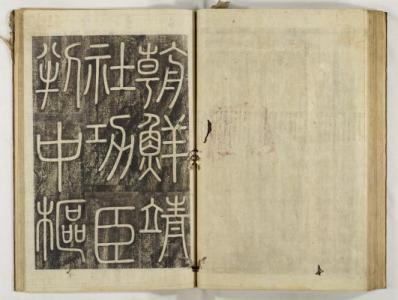 朝鮮靖
社功臣
判中樞